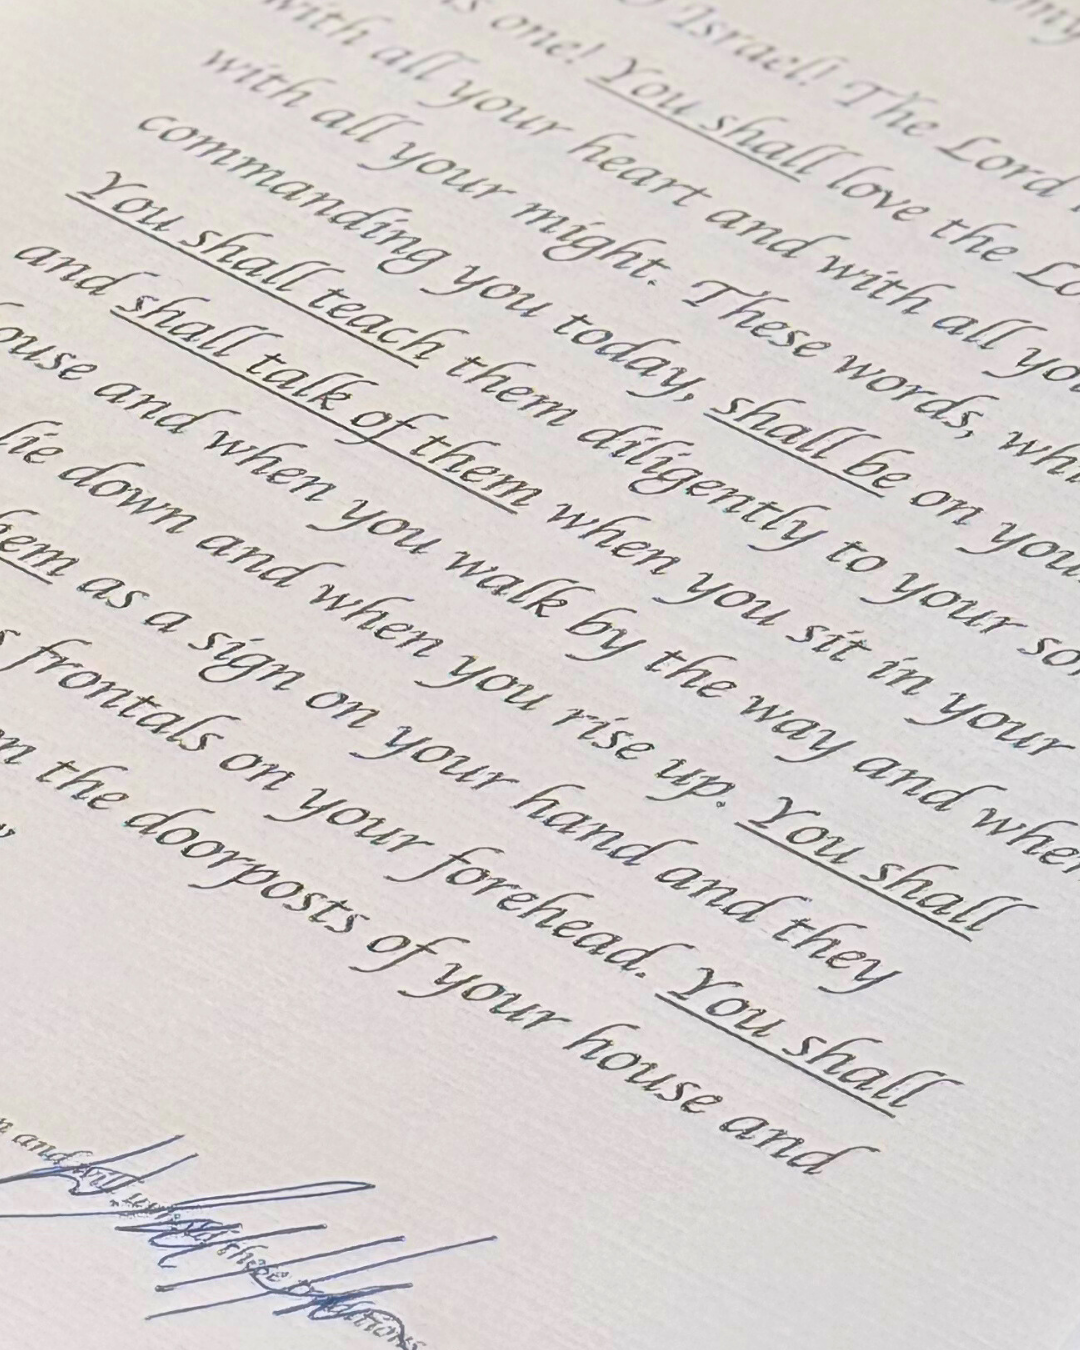 omy
O Israel! The Lord
is one! You shall love the Lo
with all your heart and with all you
with all your might. These words, whi
commanding you today, shall be on you
You shall teach them diligently to your so
and shall talk of them when you sit in your
ouse and when you walk by the way and when
lie down and when you rise up. You shall
hem as a sign on your hand and they
s frontals on your forehead. You shall
n the doorposts of your house and
n and will uphold these traditions